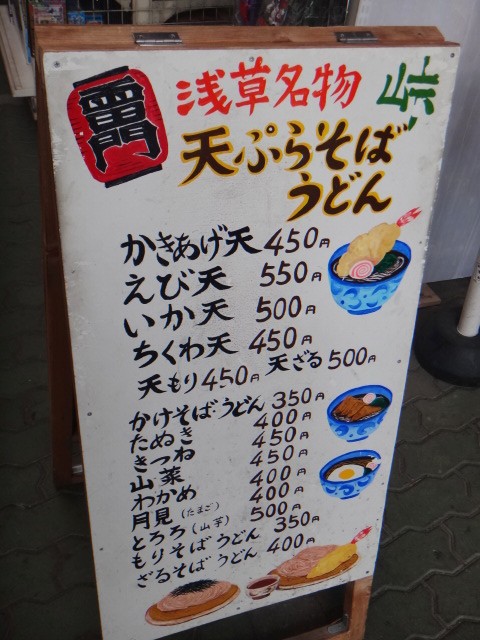 雷門
浅草名物
天ぷらそば
うどん
かきあげ天 450円
えび天 550円
いか天 500円
ちくわ天 450円
天もり 450円 天ざる 500円
かけそば・うどん 350円
たぬき 400円
きつね 450円
山菜 450円
わかめ 400円
月見(たまご) 400円
とろろ(山芋) 500円
もりそばうどん 350円
ざるそばうどん 400円